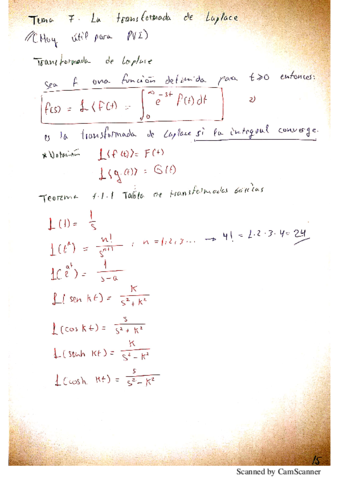 Tema 7. La transformada de Laplace
(Muy útil para PVI)
Transformada de Laplace
Sea f una función definida para t≥0 entonces:
f(s) = L{f(t)} = ∫₀^∞ e^-st f(t) dt
es la transformada de Laplace si la integral converge.
* Notación L{f(t)} = F(s)
L{g(t)} = G(t)
Teorema 7.1.1 Tabla de transformadas básicas
L(1) = 1/s
L(t^n) = n!/s^(n+1) ; n = 1, 2, 3... → 4! = 1·2·3·4 = 24
L(e^at) = 1/(s-a)
L(sen Kt) = K/(s²+K²)
L(cos Kt) = s/(s²+K²)
L(senh Kt) = K/(s²-K²)
L(cosh Kt) = s/(s²-K²)
15
Scanned by CamScanner